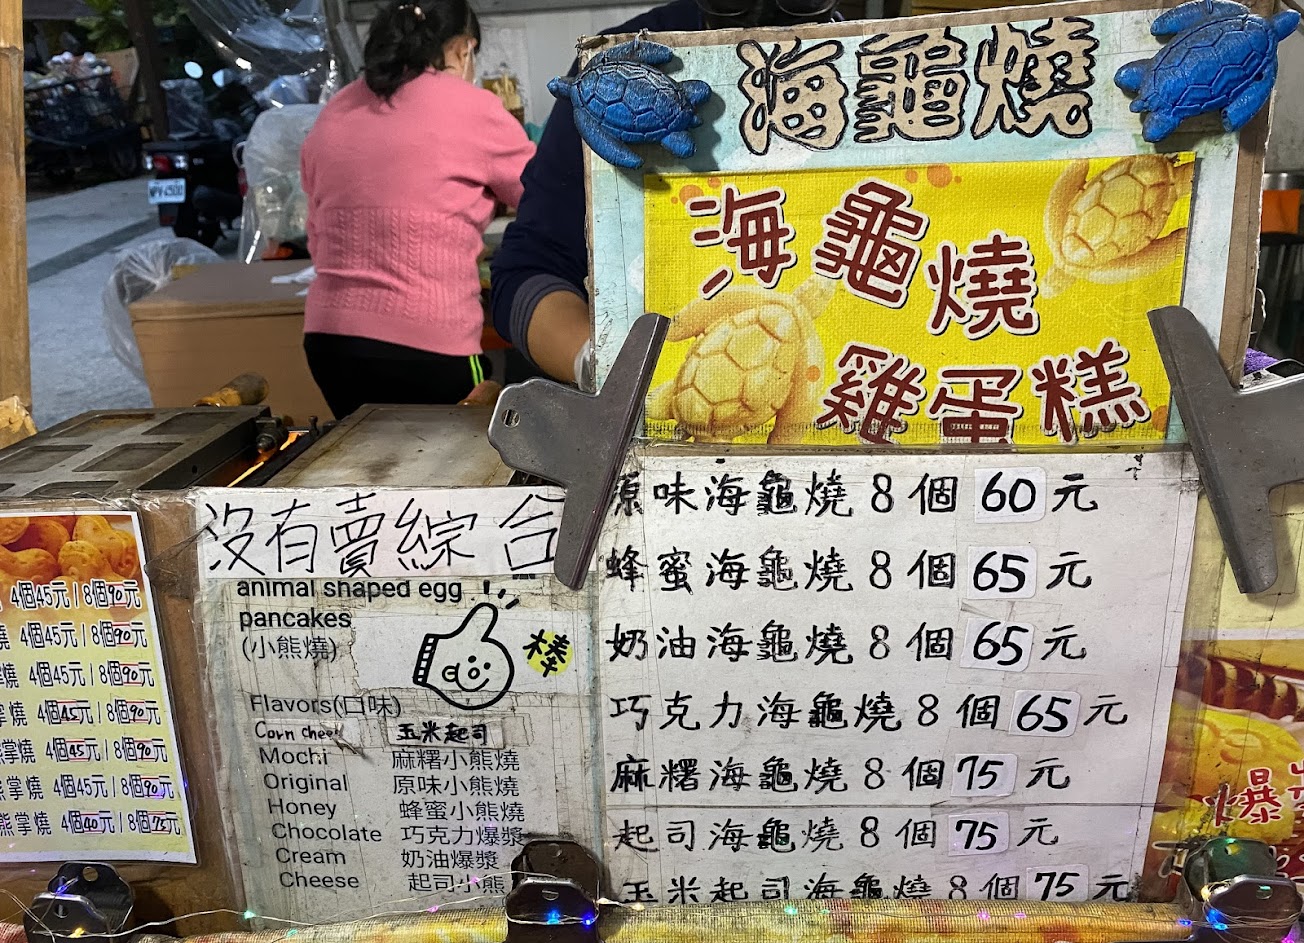 海龜燒
海龜燒
雞蛋糕
原味海龜燒 8個 60元
蜂蜜海龜燒 8個 65元
奶油海龜燒 8個 65元
巧克力海龜燒 8個 65元
麻糬海龜燒 8個 75元
起司海龜燒 8個 75元
玉米起司海龜燒 8個 75元
沒有賣綜合
animal shaped egg
pancakes
(小熊燒)
棒
Flavors(口味)
Corn chee 玉米起司
Mochi 麻糬小熊燒
Original 原味小熊燒
Honey 蜂蜜小熊燒
Chocolate 巧克力爆漿
Cream 奶油爆漿
Cheese 起司小熊
4個45元 / 8個90元
燒 4個45元 / 8個90元
燒 4個45元 / 8個90元
掌燒 4個45元 / 8個90元
掌燒 4個45元 / 8個90元
掌燒 4個45元 / 8個90元
熊掌燒 4個40元 / 8個75元
爆